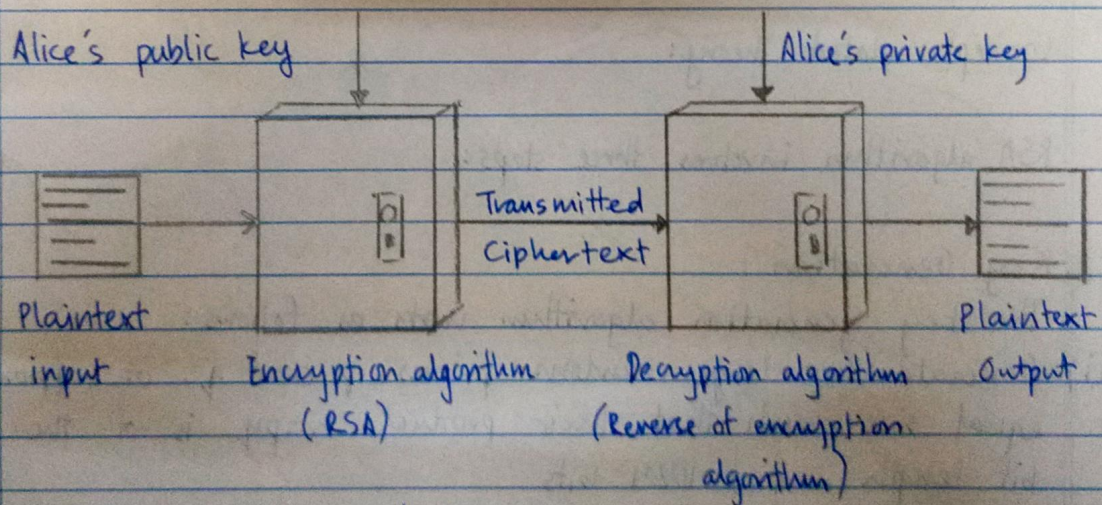 Alice's public key
Alice's private key
Transmitted
Ciphertext
Plaintext
input
Encryption algorithm
(RSA)
Decryption algorithm
(Reverse of encryption
algorithm)
Plaintext
Output